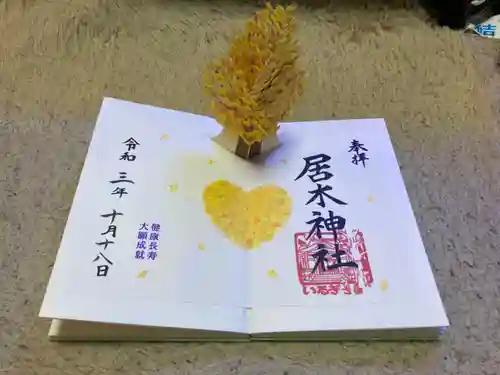 奉拝
居木神社
いるぎ
健康長寿
大願成就
令和三年十月十八日
結